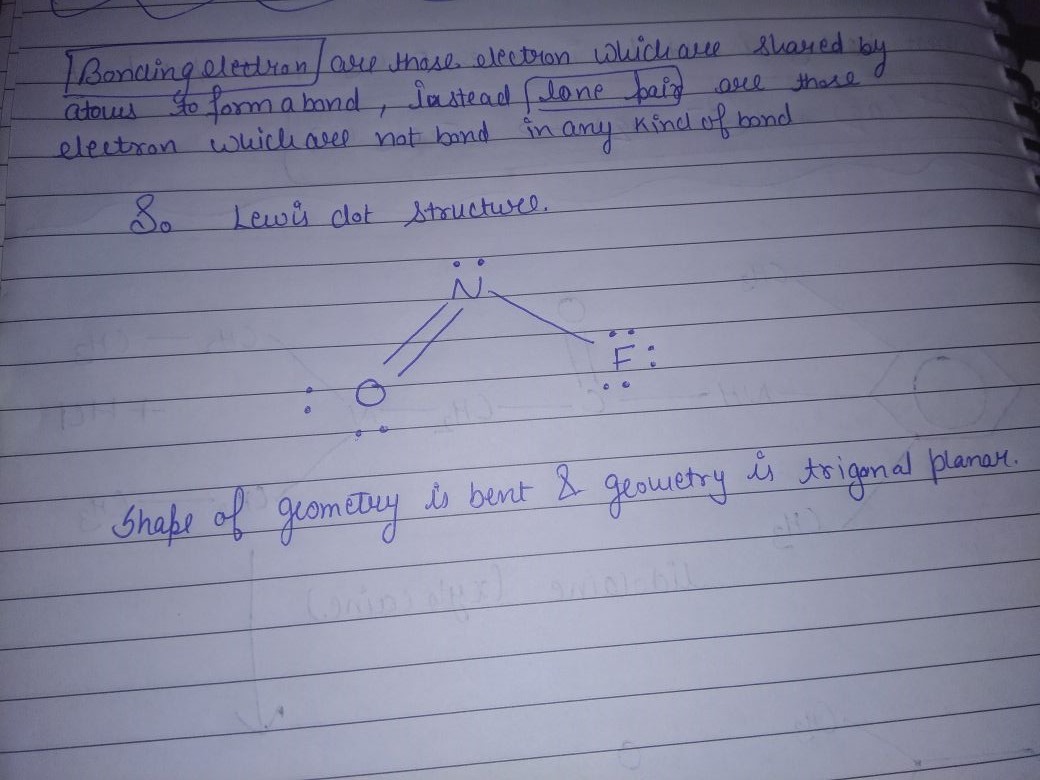 Bonding electron are those electron which are shared by
atoms to form a bond, instead lone pair are those
electron which are not bond in any kind of bond
So Lewis dot structure.
N
F
O
Shape of geometry is bent & geometry is trigonal planar.